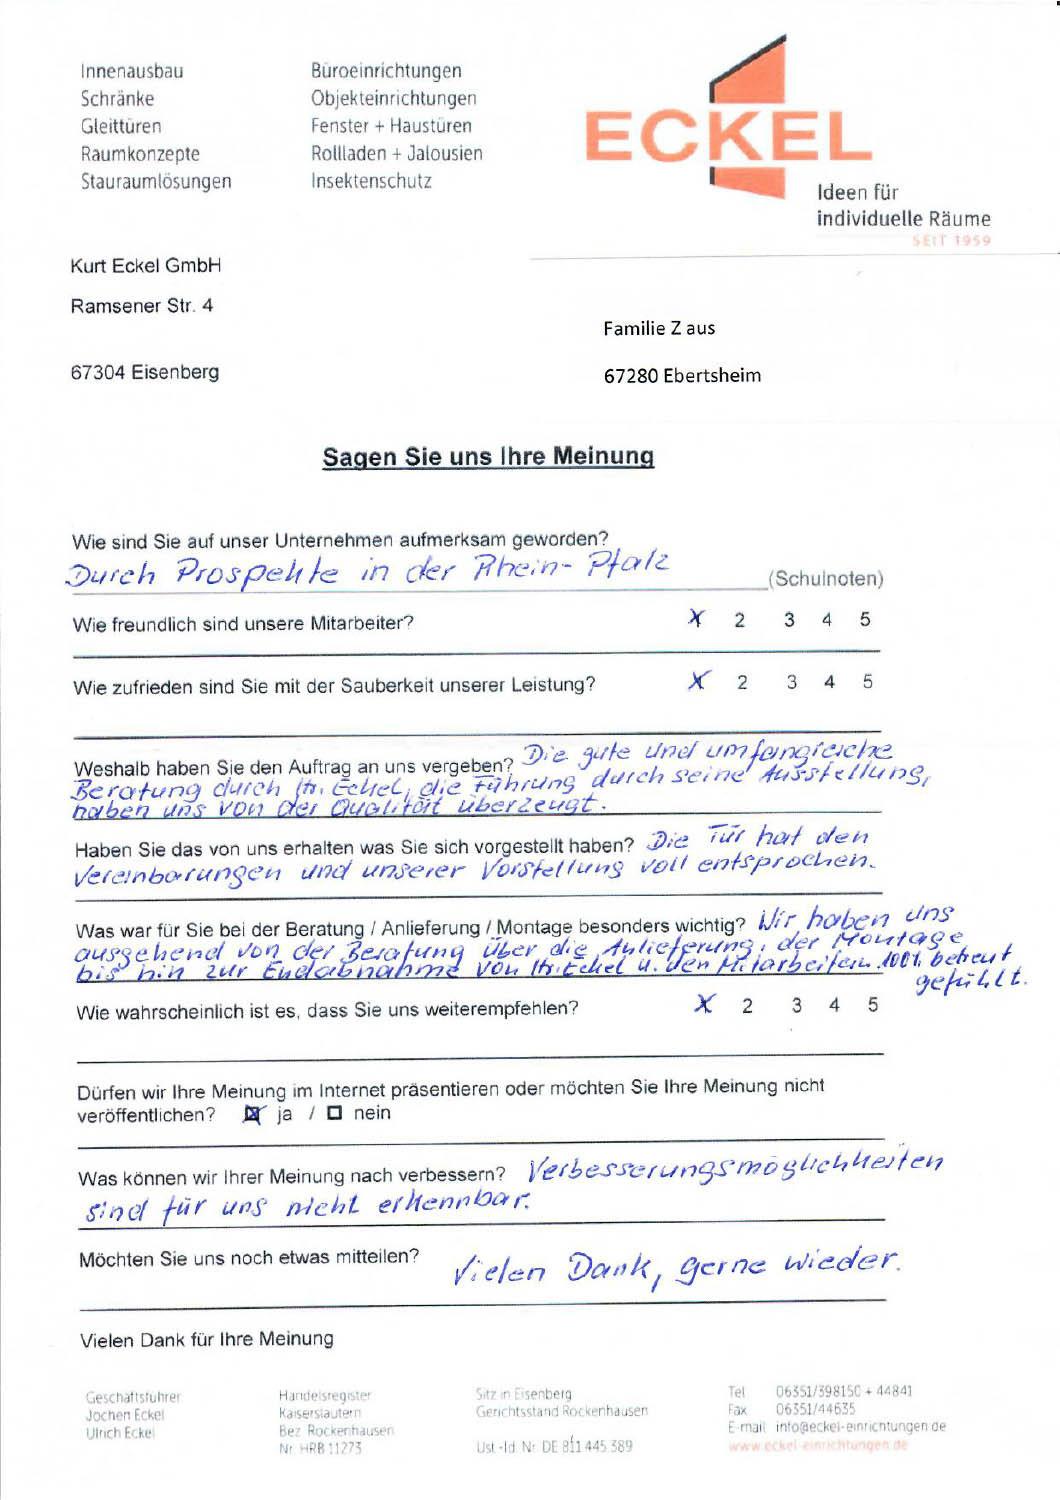 Innenausbau
Schränke
Gleittüren
Raumkonzepte
Stauraumlösungen
Büroeinrichtungen
Objekteinrichtungen
Fenster + Haustüren
Rollladen + Jalousien
Insektenschutz
ECKEL
Ideen für
individuelle Räume
SEIT 1959
Kurt Eckel GmbH
Ramsener Str. 4
67304 Eisenberg
Familie Z aus
67280 Ebertsheim
Sagen Sie uns Ihre Meinung
Wie sind Sie auf unser Unternehmen aufmerksam geworden?
Durch Prospekte in der Rhein-Pfalz
(Schulnoten)
Wie freundlich sind unsere Mitarbeiter? X 2 3 4 5
Wie zufrieden sind Sie mit der Sauberkeit unserer Leistung? X 2 3 4 5
Weshalb haben Sie den Auftrag an uns vergeben? Die gute und umfangreiche
Beratung durch Hr. Eckel, die Führung durch seine Ausstellung,
haben uns von der Qualität überzeugt.
Haben Sie das von uns erhalten was Sie sich vorgestellt haben? Die Tür hat den
Vereinbarungen und unserer Vorstellung voll entsprochen.
Was war für Sie bei der Beratung / Anlieferung / Montage besonders wichtig? Wir haben uns
ausgehend von der Beratung über die Anlieferung, der Montage
bis hin zur Endabnahme von Hr. Eckel u. den Mitarbeitern 100% betreut
gefühlt.
Wie wahrscheinlich ist es, dass Sie uns weiterempfehlen? X 2 3 4 5
Dürfen wir Ihre Meinung im Internet präsentieren oder möchten Sie Ihre Meinung nicht
veröffentlichen? ☒ ja / ☐ nein
Was können wir Ihrer Meinung nach verbessern? Verbesserungsmöglichkeiten
sind für uns nicht erkennbar.
Möchten Sie uns noch etwas mitteilen? Vielen Dank, gerne wieder.
Vielen Dank für Ihre Meinung
Geschäftsführer
Jochen Eckel
Ulrich Eckel
Handelsregister
Kaiserslautern
Bez. Rockenhausen
Nr. HRB 11273
Sitz in Eisenberg
Gerichtsstand Rockenhausen
Ust.-Id. Nr. DE 811 445 389
Tel 06351/398150 + 44841
Fax 06351/44635
E-mail info@eckel-einrichtungen.de
www.eckel-einrichtungen.de